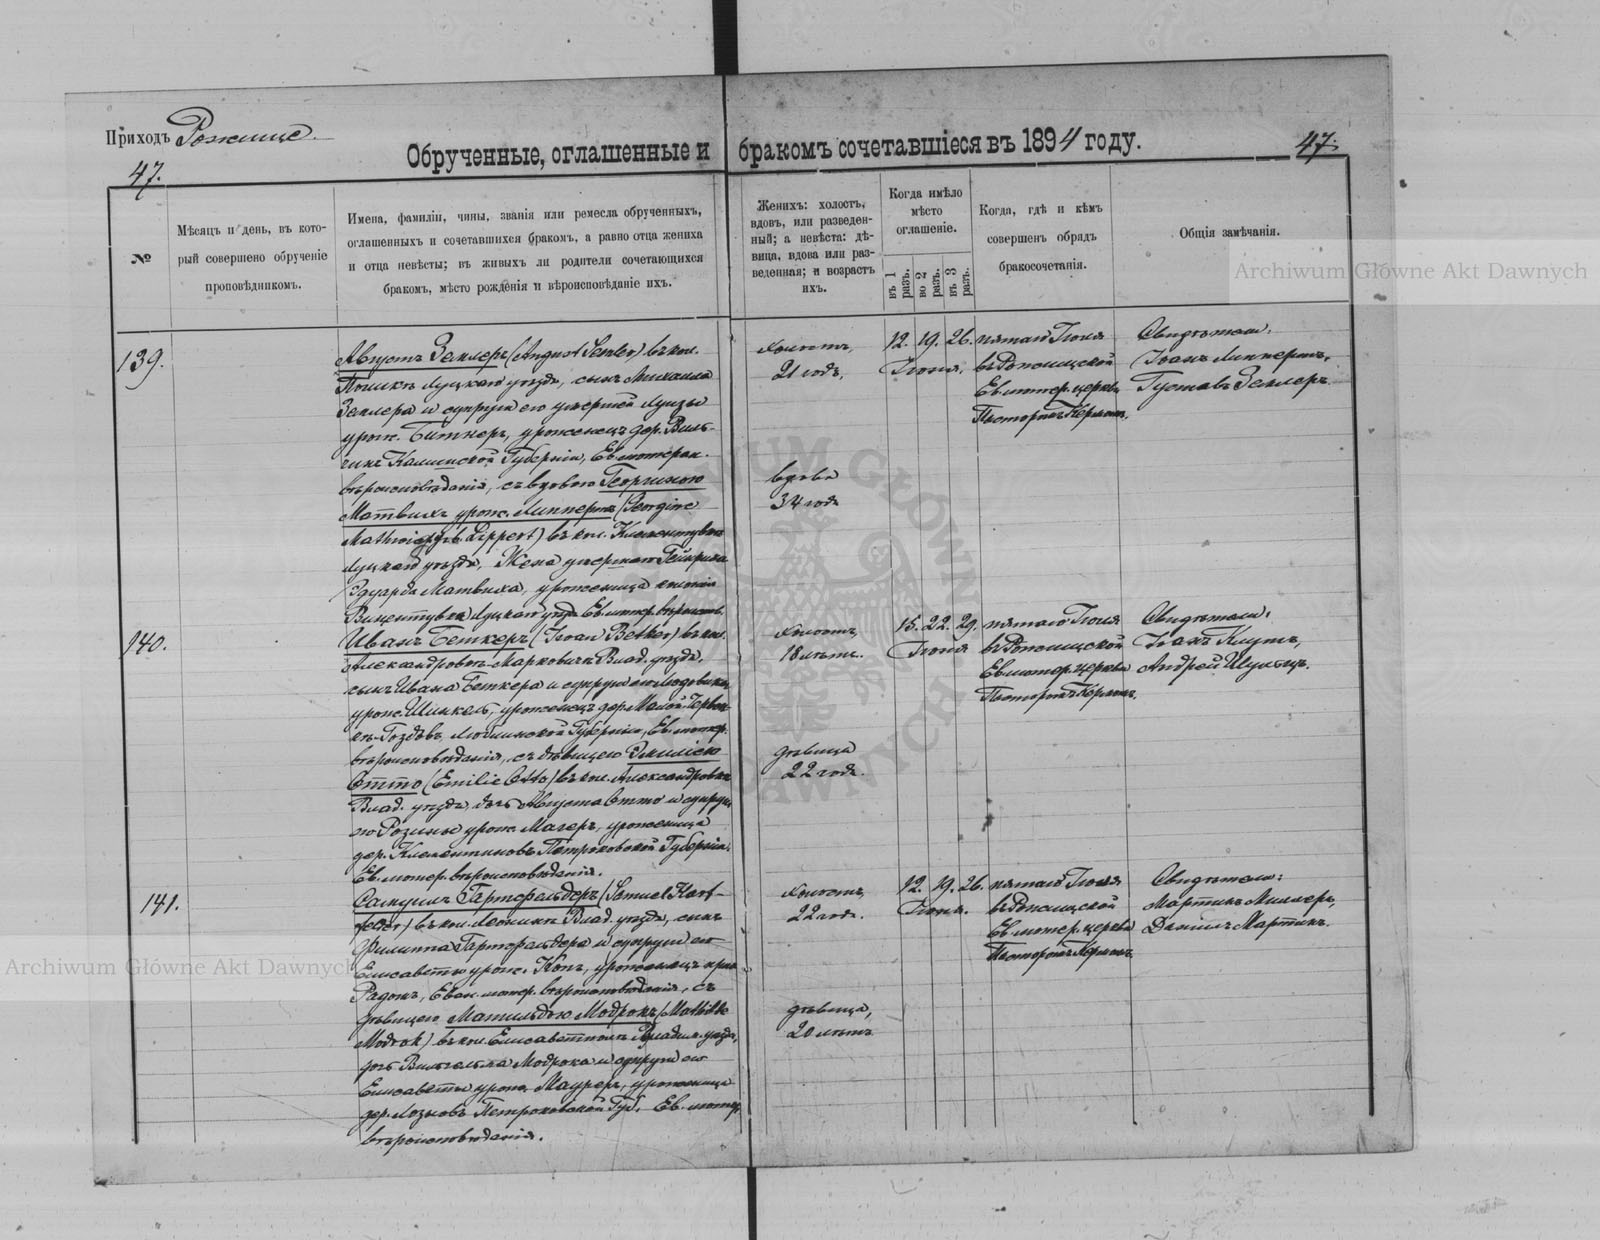 Приходъ Рожище
47.
Обрученные, оглашенные и бракомъ сочетавшіеся въ 1894 году.
47.
№
Мѣсяцъ и день, въ кото-
рый совершено обрученіе
проповѣдникомъ.
Имена, фамиліи, чины, званія или ремесла обрученныхъ,
оглашенныхъ и сочетавшихся бракомъ, а равно отца жениха
и отца невѣсты; въ живыхъ ли родители сочетающихся
бракомъ, мѣсто рожденія и вѣроисповѣданіе ихъ.
Женихъ: холостъ,
вдовъ, или разведен-
ный; а невѣста: дѣ-
вица, вдова или раз-
веденная; и возрастъ
ихъ.
Когда имѣло
мѣсто
оглашеніе.
въ 1 разъ.
во 2 разъ.
въ 3 разъ.
Когда, гдѣ и кѣмъ
совершенъ обрядъ
бракосочетанія.
Общія замѣчанія.
139.
Августъ Землеръ (August Semler) въ кол.
Луцкаго уѣзда, сынъ Михаила
Землера и супруги его умершей Луизы
урож. Битнеръ, уроженецъ дер.
Калишской Губерніи, Ев. лютеран.
вѣроисповѣданія, съ вдовою Георгиною
Матвихъ урож. Липпертъ (Georgine
Lippert) въ кол. Клементувкѣ
Луцкаго уѣзда, Жена умершаго Гейнриха
Эдуарда Матвиха, уроженица колоніи
Луцкаго уѣзда Ев. лютер. вѣроиспов.
холостъ,
21 годъ,
вдова
34 года
12. 19. 26.
Іюня.
пятаго Іюля
въ Рожищской
Ев. лютер. церкви
Пасторомъ Керномъ.
Свидѣтели:
Іоаннъ Липпертъ,
Густавъ Землеръ.
140.
Иванъ Беткеръ (Iwan Betker) въ кол.
Александровкѣ-Марковичи Влад. уѣзда,
сынъ Ивана Беткера и супруги его Людовики
урож. Шинкель, уроженецъ дер. Малой
Люблинской Губерніи, Ев. лютер.
вѣроисповѣданія, съ дѣвицею Эмиліею
Отто (Emilie Otto) въ кол. Александровкѣ
Влад. уѣзда, дочь Августа Отто и супруги
его Розины урож. Магеръ, уроженица
дер. Клементиновъ Петроковской Губерніи.
Ев. лютер. вѣроисповѣданія.
холостъ,
18 лѣтъ.
дѣвица
22 года.
15. 22. 29.
Іюня
пятаго Іюля
въ Рожищской
Ев. лютер. церкви
Пасторомъ Керномъ.
Свидѣтели:
Андрей Шульцъ.
141.
Самуилъ Гартфельдеръ (Samuel Hart-
felder) въ кол. Леонинъ Влад. уѣзда, сынъ
Филиппа Гартфельдера и супруги его
Елисаветы урож. Копъ, уроженецъ
Радомъ, Еван. лютер. вѣроисповѣданія, съ
дѣвицею Матильдою Модрокъ (Mathilde
Modrok) въ кол. Елисаветполь Владим. уѣзда,
дочь Вильгельма Модрока и супруги его
Елисаветы урож. Мауреръ, уроженица
дер. Петроковской Губ. Ев. лютер.
вѣроисповѣданія.
холостъ,
22 года.
дѣвица,
20 лѣтъ
12. 19. 26.
Іюня.
пятаго Іюля
въ Рожищской
Ев. лютер. церкви
Пасторомъ Керномъ.
Свидѣтели:
Мартинъ Миллеръ,
Даніилъ Мартинъ.
Archiwum Główne Akt Dawnych
Archiwum Główne Akt Dawnych
ARCHIWUM GŁÓWNE AKT DAWNYCH